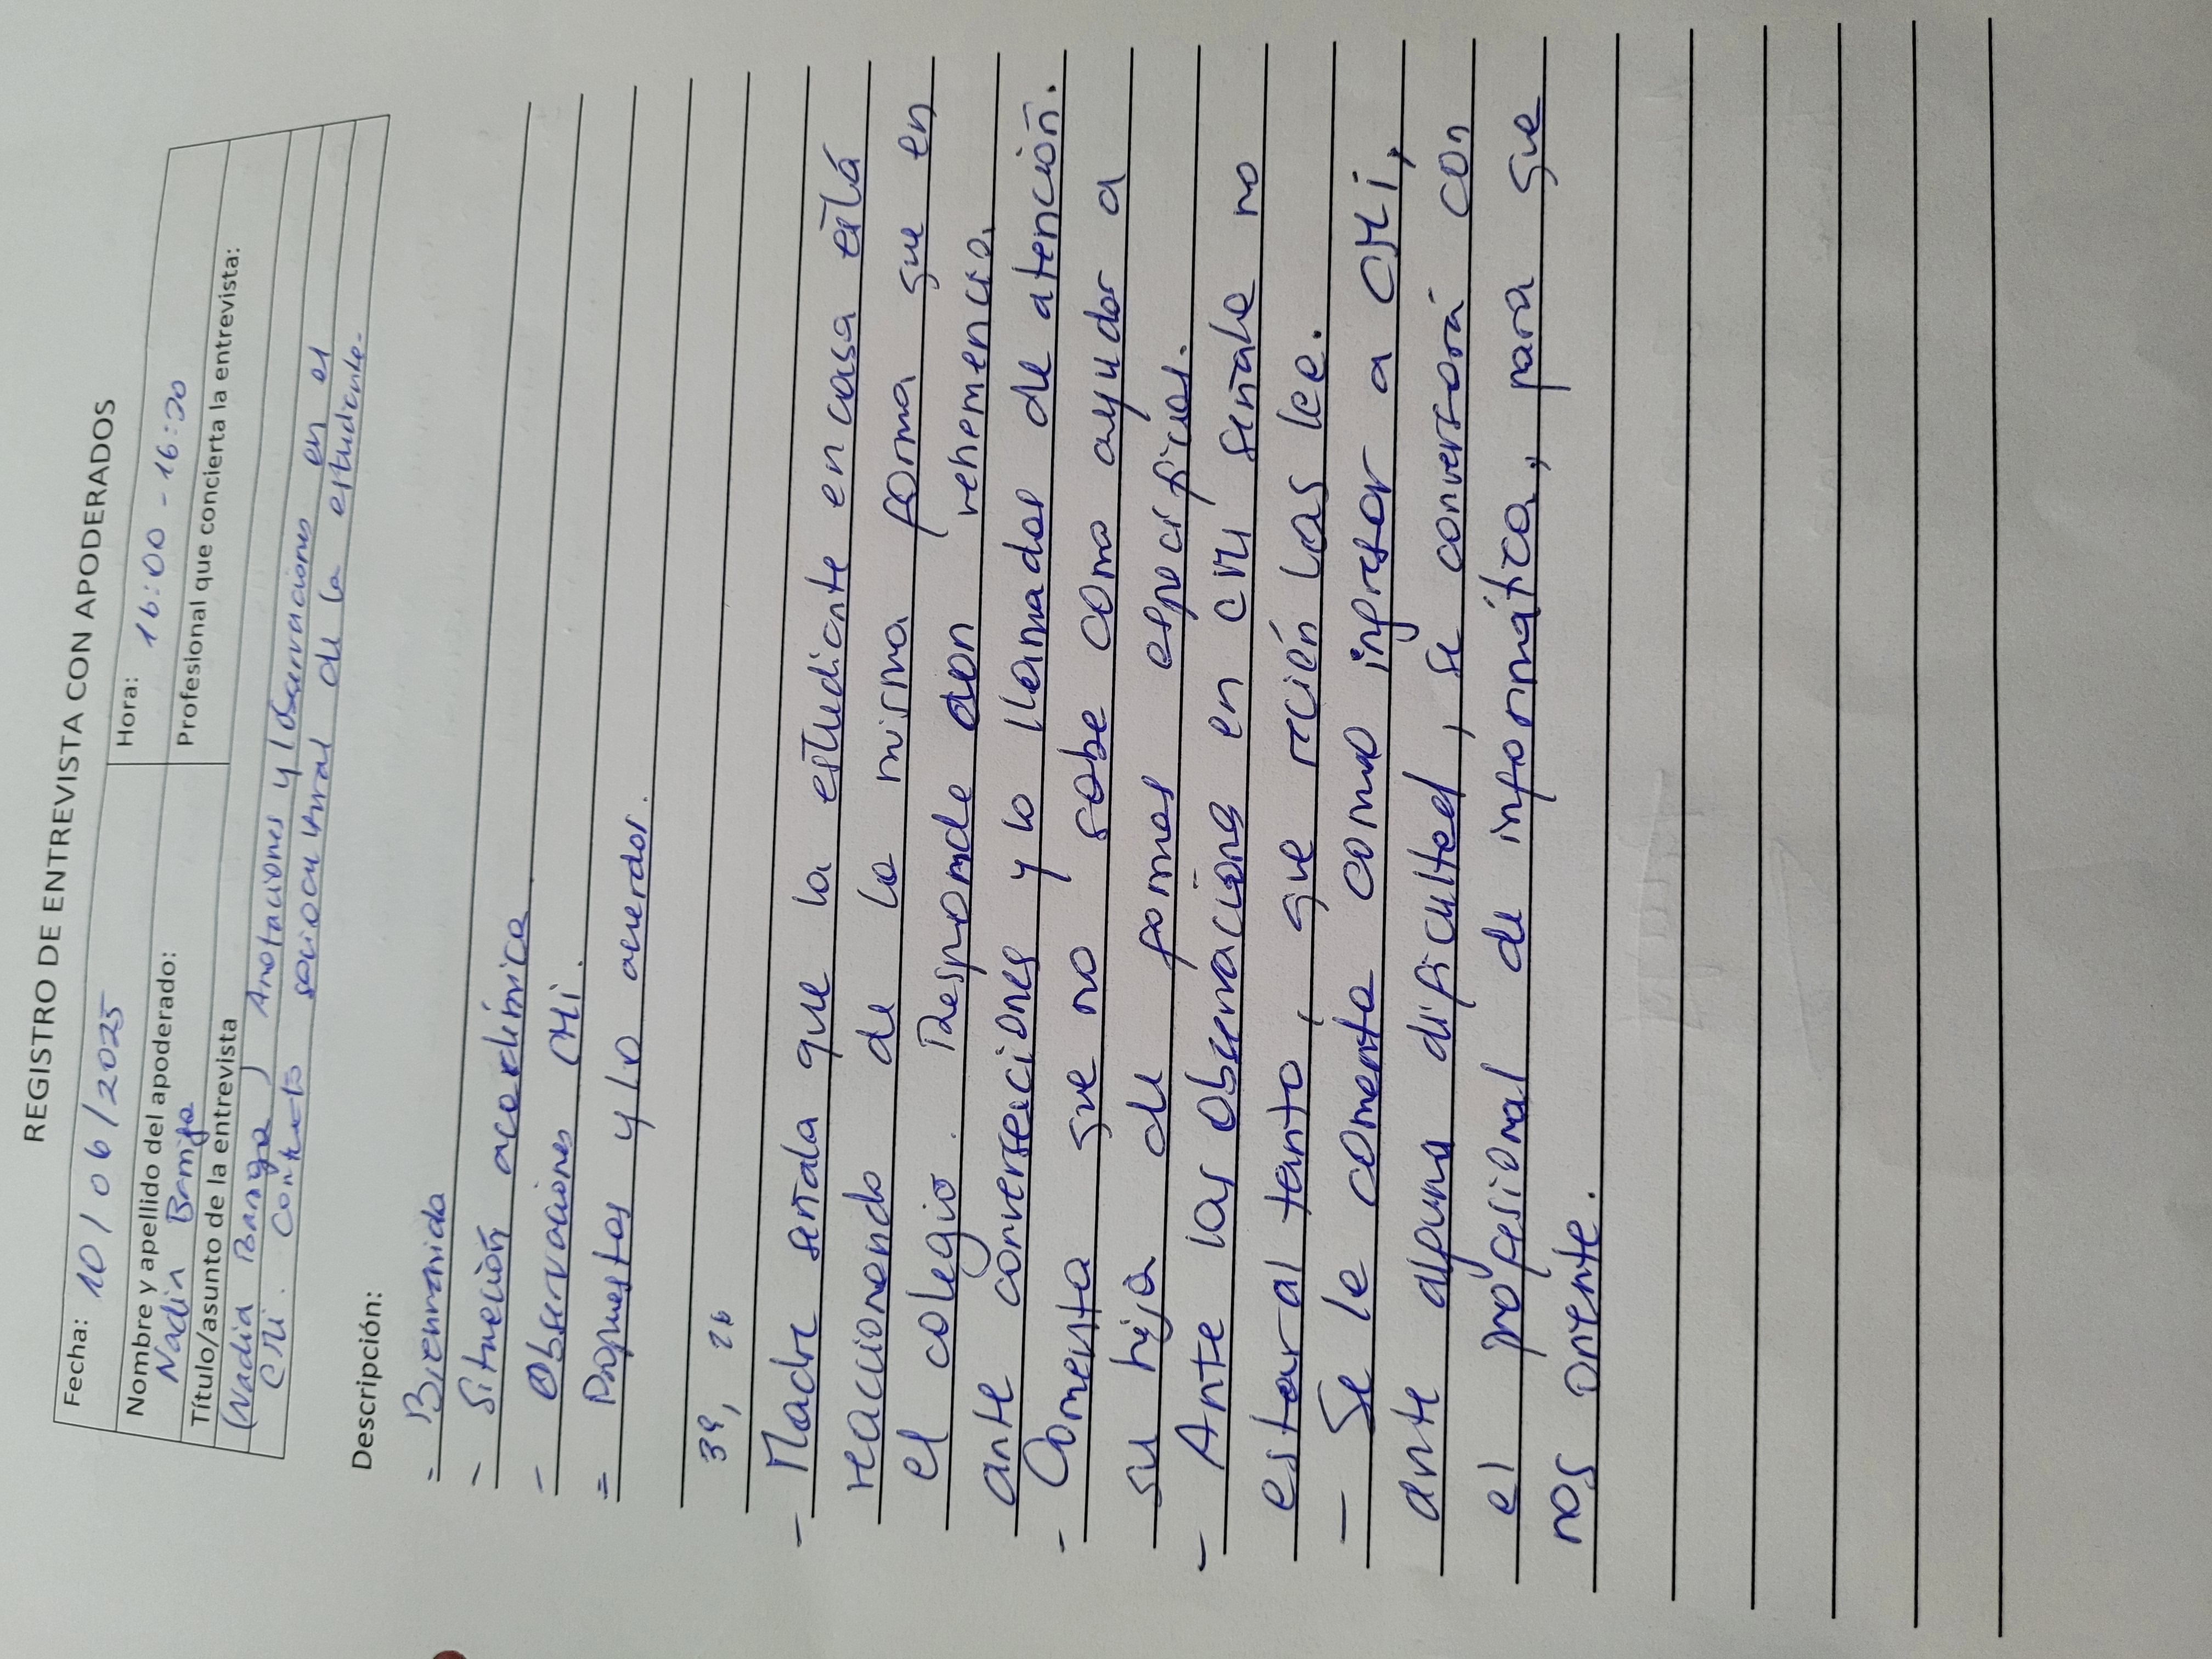 REGISTRO DE ENTREVISTA CON APODERADOS
Fecha: 10/06/2025 Hora: 16:00 - 16:20
Nombre y apellido del apoderado: Profesional que concierta la entrevista:
Nadia
Título/asunto de la entrevista
(Nadia ) Anotaciones y/observaciones en el
CMi. Contexto sociocultural de la estudiante.
Descripción:
= Bienvenida
- Situación académica
- Observaciones CMi.
= Propuestas y/o acuerdos.
39, 26
- Madre señala que la estudiante en casa está
reaccionando de la misma forma que en
el colegio. Responde con vehemencia
ante conversaciones y/o llamados de atención.
- Comenta que no sabe como ayudar a
su hija de formas específicas.
- Ante las observaciones en CMi señala no
estar al tanto, que recién las lee.
- Se le comenta como ingresar a CMi,
ante alguna dificultad, se conversará con
el profesional de informática, para que
nos oriente.